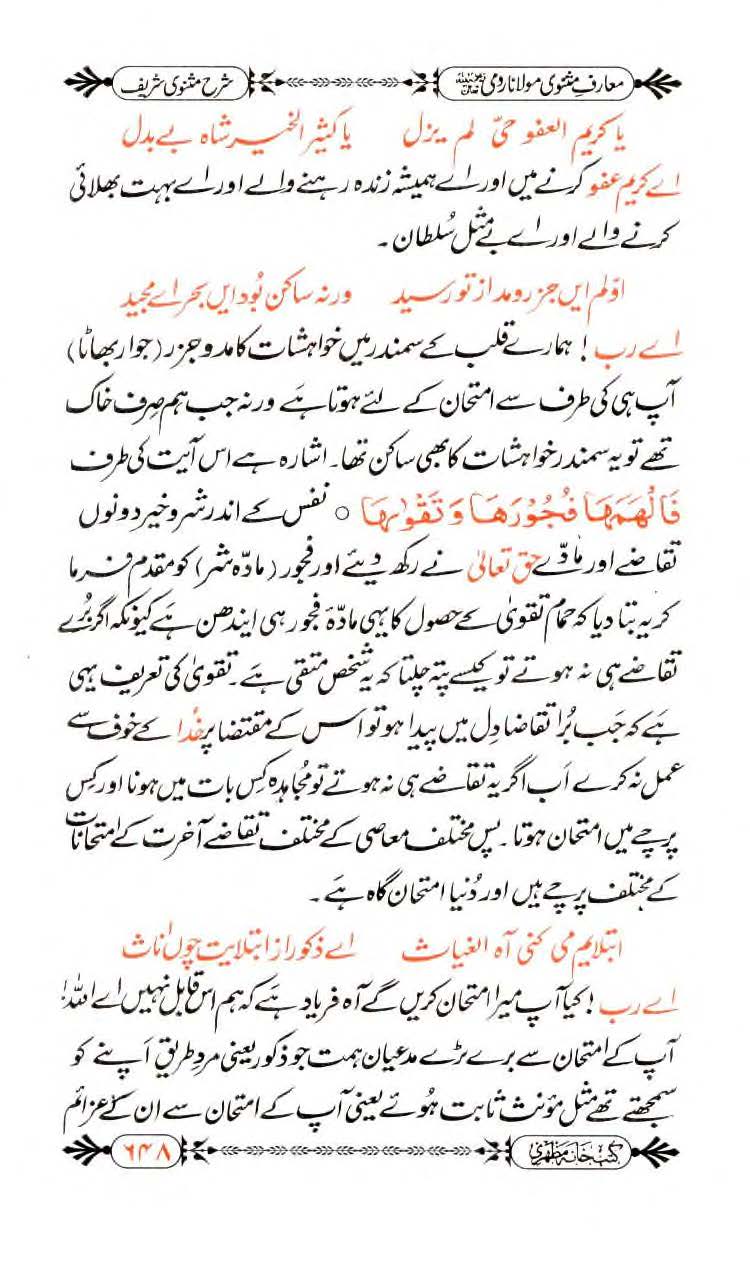 معارفِ مثنوی مولانا رومی رحمۃ اللہ تعالیٰ علیہ شرح مثنوی شریف
یا کریم العفو حیّ لم یزل یا کثیر الخیر شاہ بے بدل
اے کریم عفو کرنے میں اور اے ہمیشہ زندہ رہنے والے اور اے بہت بھلائی
کرنے والے اور اے بے مثل سُلطان ۔
اوّلم ایں جزر و مد از تو رسید ورنہ ساکن بُود ایں بحر اے مجید
اے رب ! ہمارے قلب کے سمندر میں خواہشات کا مد و جزر (جوار بھاٹا)
آپ ہی کی طرف سے امتحان کے لئے ہوتا ہے ورنہ جب ہم صِرف خاک
تھے تو یہ سمندر خواہشات کا بھی ساکن تھا۔ اشارہ ہے اس آیت کی طرف
فَاَلْهَمَهَا فُجُوْرَهَا وَ تَقْوٰىهَا ○ نفس کے اندر شر و خیر دونوں
تقاضے اور مادّے حق تعالیٰ نے رکھ دیئے اور فجور (مادّہ شر) کو مقدم فرما
کر یہ بتا دیا کہ حمام تقویٰ کے حصول کا یہی مادّۂ فجور ہی ایندھن ہے کیونکہ اگر بُرے
تقاضے ہی نہ ہوتے تو کیسے پتہ چلتا کہ یہ شخص متقی ہے۔ تقویٰ کی تعریف یہی
ہے کہ جَب بُرا تقاضا دِل میں پیدا ہو تو اس کے مقتضا پر خُدا کے خوف سے
عمل نہ کرے اَب اگر یہ تقاضے ہی نہ ہوتے تو مُجاہدہ کِس بات میں ہونا اور کِس
پرچے میں امتحان ہوتا ۔ پس مختلف معاصی کے مختلف تقاضے آخرت کے امتحانات
کے مختلف پرچے ہیں اور دُنیا امتحان گاہ ہے ۔
ابتلایم می کنی آہ الغیاث اے ذکور از ابتلایت چوں اُناث
اے رب ! کیا آپ میرا امتحان کریں گے آہ فریاد ہے کہ ہم اس قابل نہیں اے اللہ !
آپ کے امتحان سے بڑے بڑے مدعیان ہمت جو ذکور یعنی مردِ طریق اَپنے کو
سمجھتے تھے مثل مؤنث ثابت ہُوئے یعنی آپ کے امتحان سے ان کے عزائم
کتب خانہ مظہری ۶۴۸